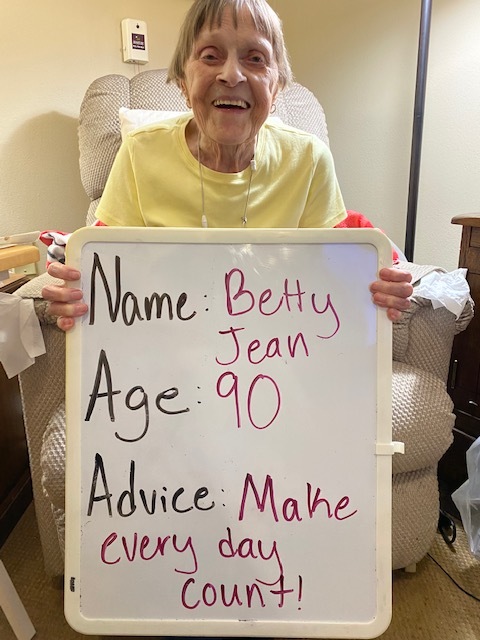 Name: Betty
Jean
Age: 90
Advice: Make
every day
count!